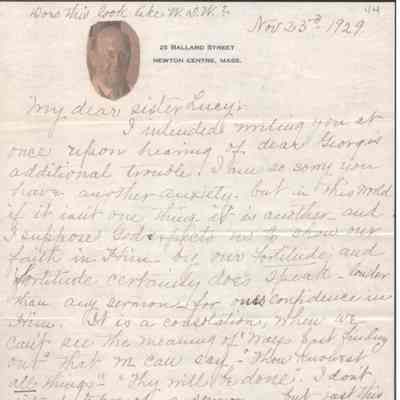 Does this look like W.D.W.?
44
Nov 23rd 1929
25 Ballard Street
Newton Centre, Mass.
My dear sister Lucy:
I intended writing you at
once upon hearing of dear George's
additional trouble. I am so sorry you
have another anxiety. but in this world
if it isnt one thing it is another and
I suppose God expects us to show our
faith in Him by our fortitude, and
fortitude certainly does speak louder
than any sermons for our confidence in
Him. It is a consolation, when we
can't see the meaning of "Ways past finding
out" that we can say - "Thou knowest
all things" - "Thy will be done". I don't
sermon but just this